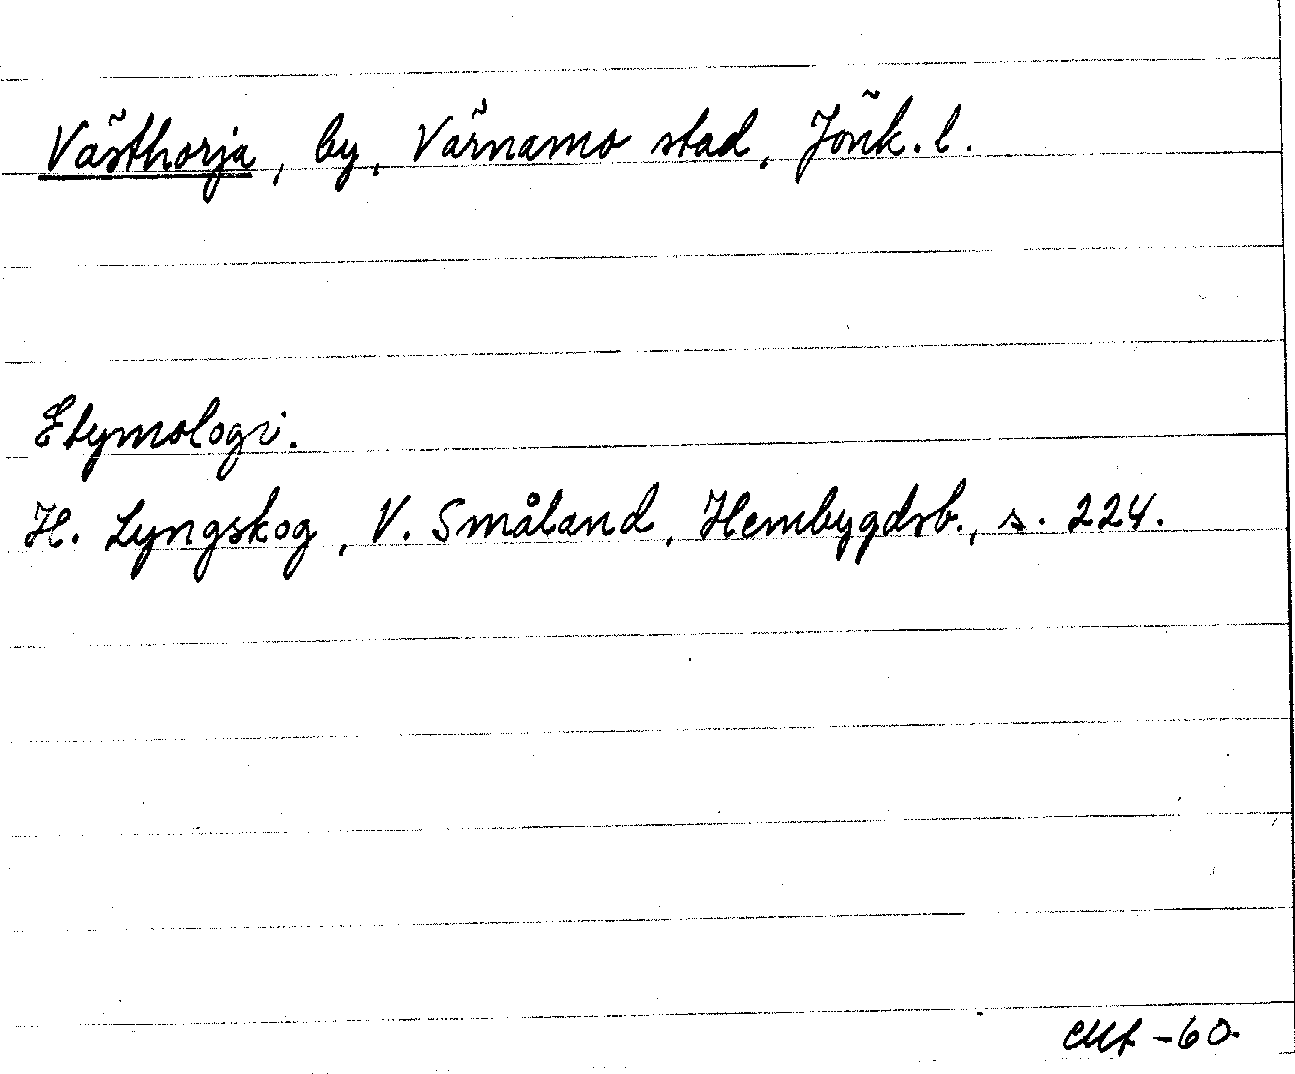 Västhorja, by, Värnamo stad, Jönk. l.
Etymologi.
H. Lyngskog, V. Småland, Hembygdsb., s. 224.
-60.